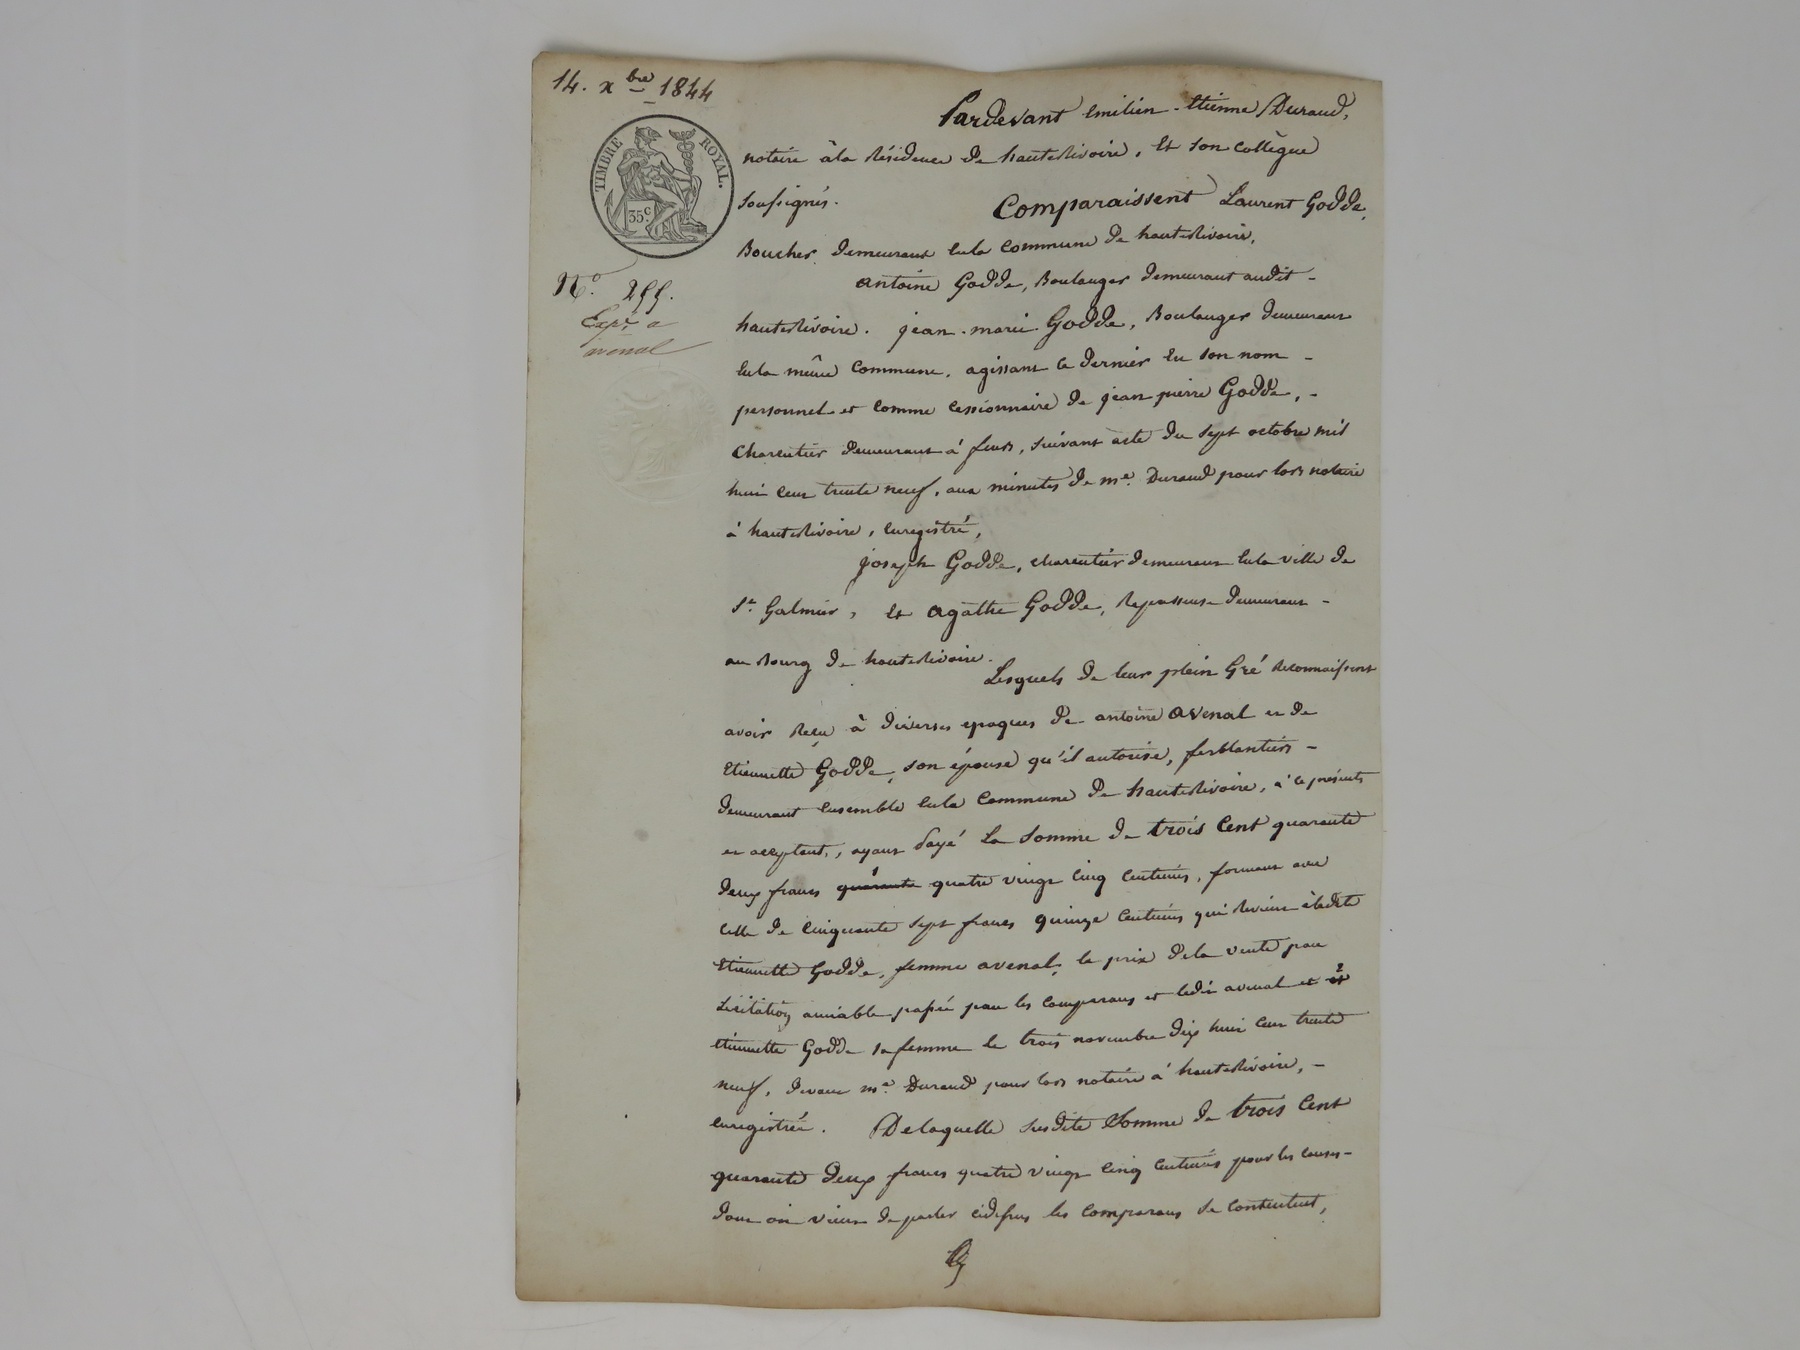 14. xbre 1844
TIMBRE ROYAL.
35c.
No. 255.
Expé. a
avenal
Pardevant emilien-Etienne Durand,
notaire à la Résidence de hauterivoire, Et son collègue
soussignés.
Comparaissent Laurent Godde,
Boucher demeurant en la commune de hauterivoire,
antoine Godde, Boulanger demeurant audit-
hauterivoire. jean-marie Godde, Boulanger demeurant
en la même commune, agissant ce dernier en son nom-
personnel et comme cessionnaire de jean pierre Godde,-
charcutier demeurant à feurs, suivant acte du sept octobre mil
huit cent trente neuf, aux minutes de me. Durand pour lors notaire
à hauterivoire, enregistré,
joseph Godde, charcutier demeurant en la ville de
St. Galmier, et agathe Godde, Repasseuse demeurant-
au Bourg de hauterivoire.
Lesquels de leur plein Gré Reconnaissent
avoir Reçu à diverses epoques de antoine avenal et de
Etiennette Godde, son épouse qu'il autorise, ferblantiers-
demeurant ensemble en la commune de hauterivoire, à ce présents
et acceptant, ayant payé La Somme de trois Cent quarante
deux francs quarante quatre vingt cinq centimes, formant avec
celle de cinquante sept francs quinze centimes qui Revient à ladite
Etiennette Godde, femme avenal, le prix de la vente par
Licitation amiable passée par les comparans et ledit avenal et et
etiennette Godde sa femme le trois novembre dix huit cent trente
neuf, devant me. Durand pour lors notaire à hauterivoire,-
enregistrée. De laquelle susdite Somme de trois Cent
quarante deux francs quatre vingt cinq centimes pour les causes-
dont on vient de parler cidessus les comparans se contentent,